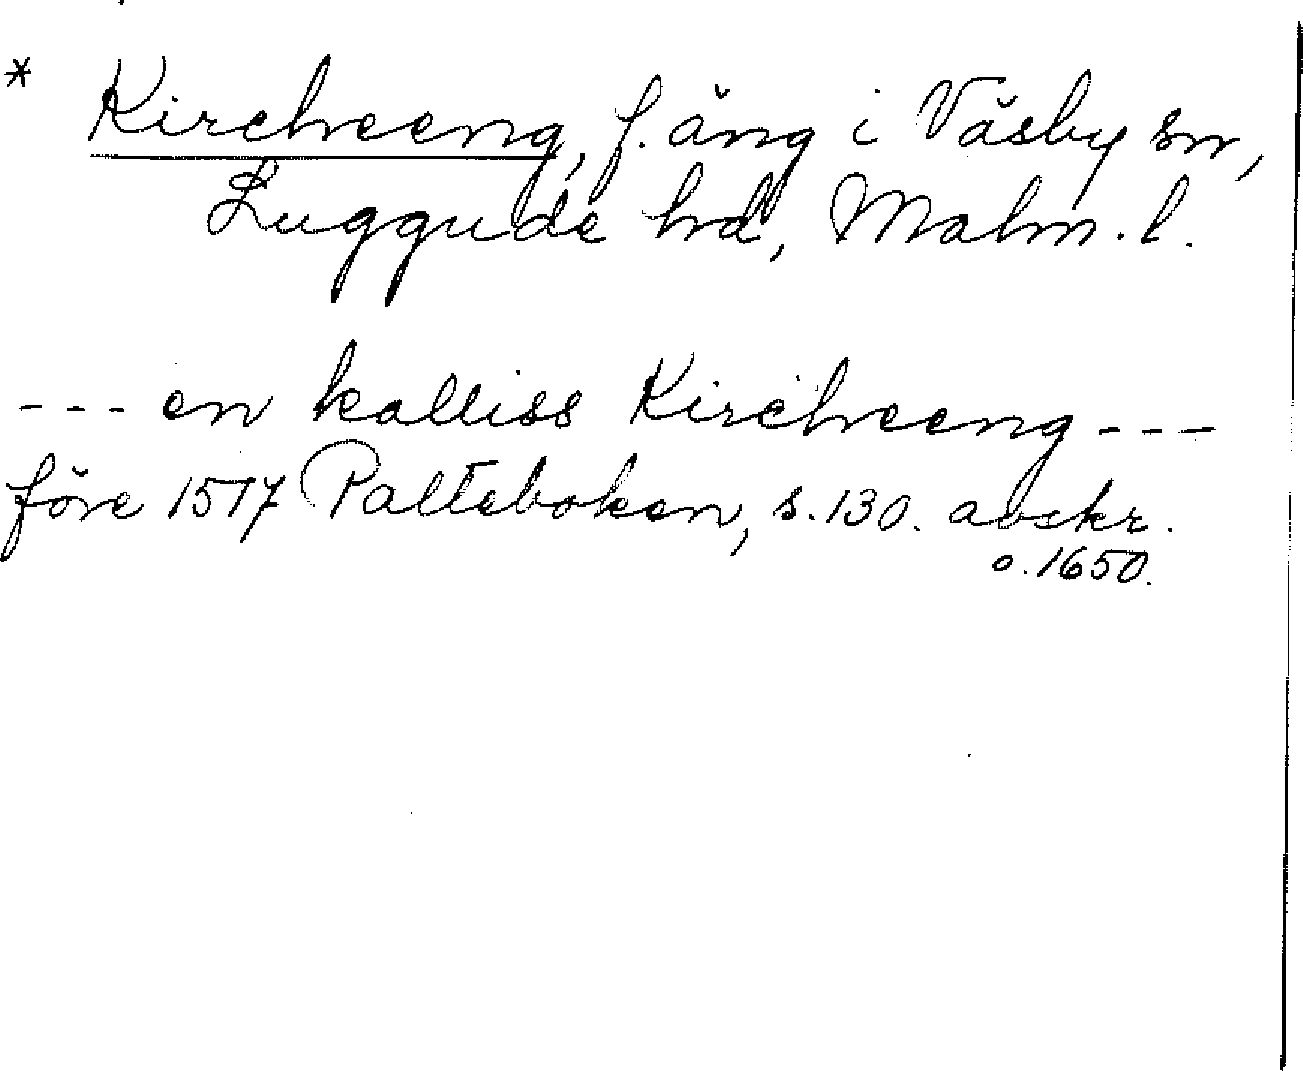 * Kircheeng, f. äng i Väsby sn,
Luggude hd, Malm. l.
--- en kalliss Kircheeng ---
före 1517 Palteboken, s. 130. avskr.
o. 1650.